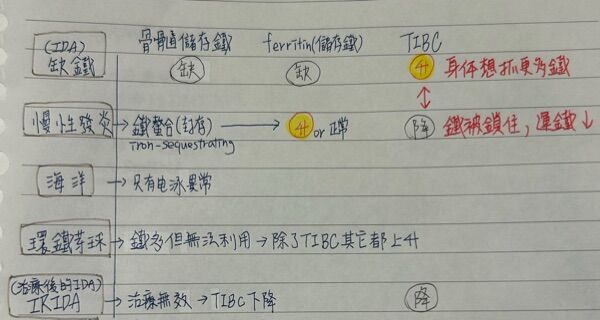 骨骨直儲存鐵 ferritin(儲存鐵) TIBC
(IDA)
缺鐵 缺 缺 升 身体想抓更多鐵
慢小生發炎 → 鐵螯合(封存) → 升 or 正常 降 鐵被鎖住, 運鐵↓
Iron-sequestrating
海洋 → 只有电泳異常
環鐵芽球 → 鐵多但無法利用 → 除了TIBC其它都上升
(治療後的IDA)
IRIDA → 治療無效 → TIBC下降 降